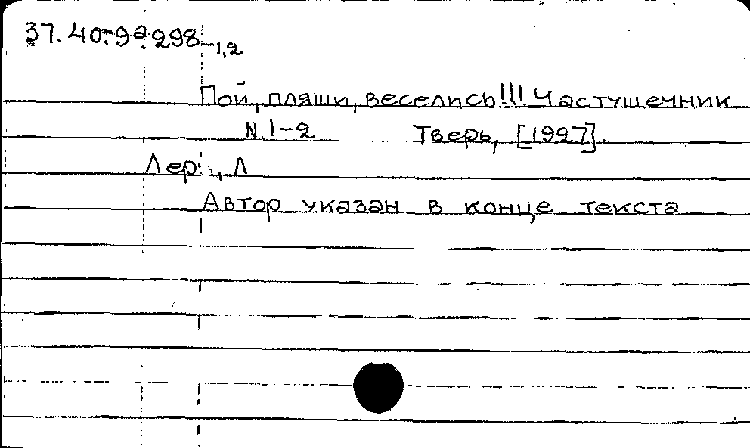 37.40-92.298-1,2
Пой, пляши, веселись!!! Частушечник
N 1-2 Тверь, [1997].
Лер., Л
Автор указан в конце текста